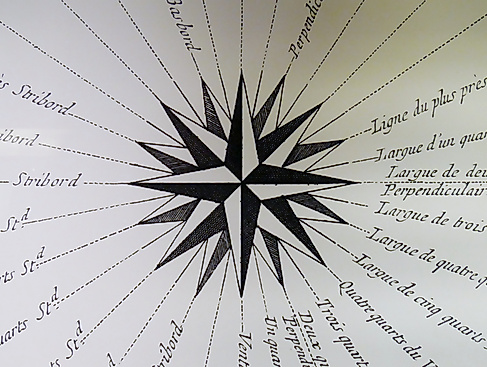 Basbord
Perpendic
Stribord
ibord
Stribord
St.d
arts St.d
uarts St.d
St.d
ribord
Vent
Un quar
Perpen
Deux qu
Trois quart
Quatre quarts du V
Largue de cinq quarts
Largue de quatre
Largue de trois
Perpendiculair
Largue de deu
Largue d'un quar
Ligne du plus près